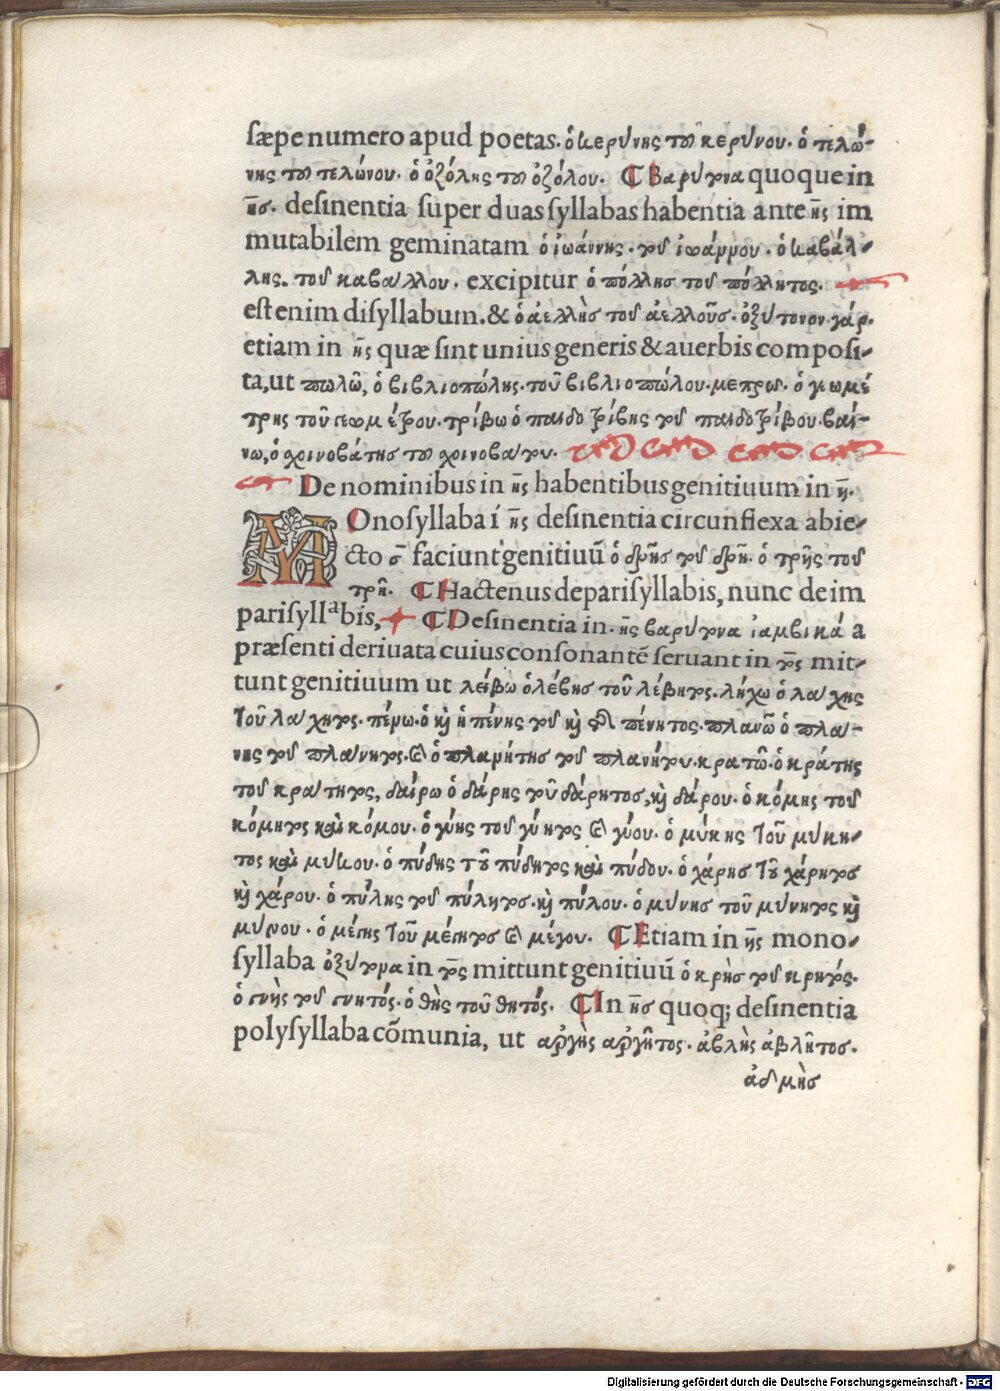 sæpe numero apud poetas. ὁ κερύνης τοῦ κερύνου. ὁ τελώ-
νης τοῦ τελώνου. ὁ ὀζόλης τοῦ ὀζόλου. ¶ Βαρύτονα quoque in
ης. desinentia super duas syllabas habentia ante ης im
mutabilem geminatam ὁ ἰωάννης. τοῦ ἰωάννου. ὁ καβάλ-
λης. τοῦ καβάλλου. excipitur ὁ πόλλης τοῦ πόλλητος.
est enim disyllabum. & ὁ ἀελλὴς τοῦ ἀελλοῦς. ὀξύτονον γάρ.
etiam in ης quæ sint unius generis & a uerbis composi-
ta, ut πωλῶ, ὁ βιβλιοπώλης. τοῦ βιβλιοπώλου. μετρῶ. ὁ γεωμέ
τρης τοῦ γεωμέτρου. τρίβω ὁ παιδοτρίβης τοῦ παιδοτρίβου. βαί-
νω, ὁ σχοινοβάτης τοῦ σχοινοβάτου.
De nominibus in ης habentibus genitiuum in η.
MOnosyllaba ī ης desinentia circunflexa abie-
cto ς faciunt genitiuū ὁ δρῆς τοῦ δρῆ. ὁ τρῆς τοῦ
τρῆ. ¶ Hactenus de parisyllabis, nunc de im
parisyllabis, ¶ Desinentia in. ης βαρύτονα ἰαμβικά a
præsenti deriuata cuius consonantē seruant in τος mit-
tunt genitiuum ut λείβω ὁ λέβης τοῦ λέβητος. λήχω ὁ λάχης
τοῦ λάχητος. πένω. ὁ καὶ ἡ πένης τοῦ καὶ τῆς πένητος. πλανῶ ὁ πλά-
νης τοῦ πλάνητος. & ὁ πλανήτης τοῦ πλανήτου. κρατῶ. ὁ κράτης
τοῦ κράτητος, δαίρω ὁ δάρης τοῦ δάρητος, καὶ δάρου. ὁ κόμης τοῦ
κόμητος καὶ κόμου. ὁ γύης τοῦ γύητος & γύου. ὁ μύκης τοῦ μύκη-
τος καὶ μύκου. ὁ πύδης τοῦ πύδητος καὶ πύδου. ὁ χάρης τοῦ χάρητος
καὶ χάρου. ὁ πύλης τοῦ πύλητος. καὶ πύλου. ὁ μύνης τοῦ μύνητος καὶ
μύνου. ὁ μέγης τοῦ μέγητος & μέγου. ¶ Etiam in ης mono-
syllaba ὀξύτονα in τος mittunt genitiuū ὁ κρὴς τοῦ κρητός.
ὁ σὴς τοῦ σητός. ὁ θὴς τοῦ θητός. ¶ In ης quoq; desinentia
polysyllaba cōmunia, ut ἀργὴς ἀργῆτος. ἀβλὴς ἀβλῆτος.
ἀδμὴς
Digitalisierung gefördert durch die Deutsche Forschungsgemeinschaft - DFG